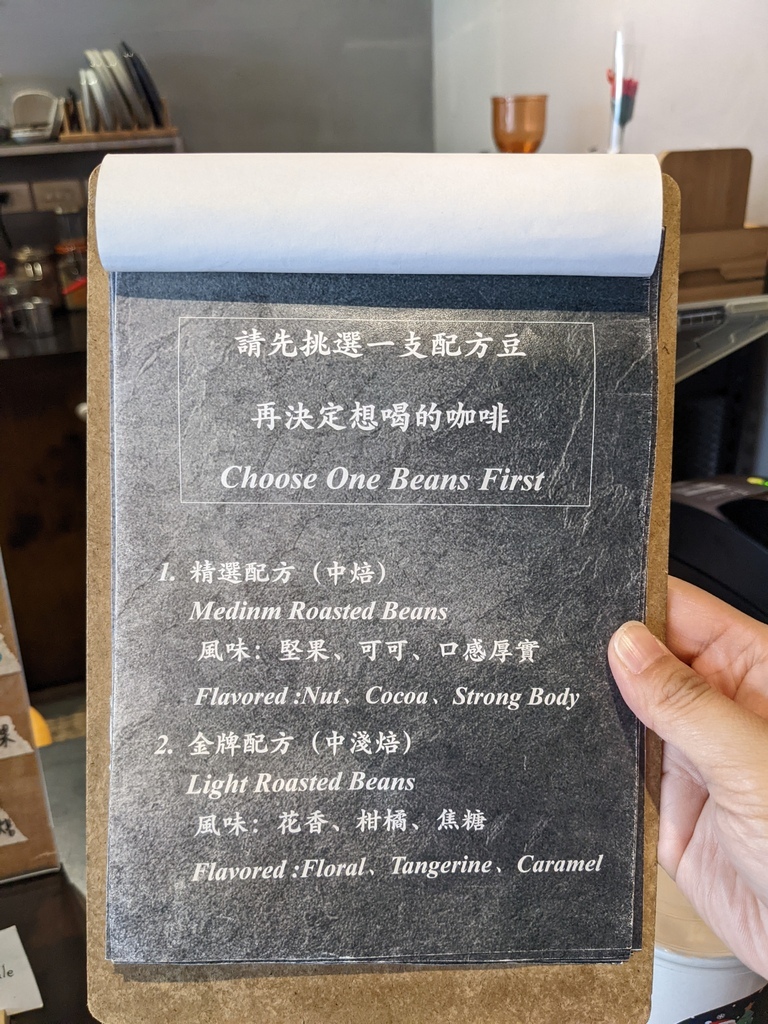 請先挑選一支配方豆
再決定想喝的咖啡
Choose One Beans First
1. 精選配方（中焙）
Medinm Roasted Beans
風味：堅果、可可、口感厚實
Flavored :Nut、Cocoa、Strong Body
2. 金牌配方（中淺焙）
Light Roasted Beans
風味：花香、柑橘、焦糖
Flavored :Floral、Tangerine、Caramel